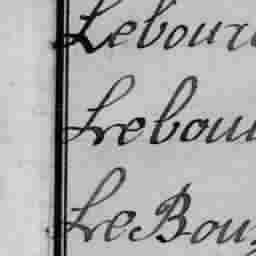 Lebour
Lebou
LeBou